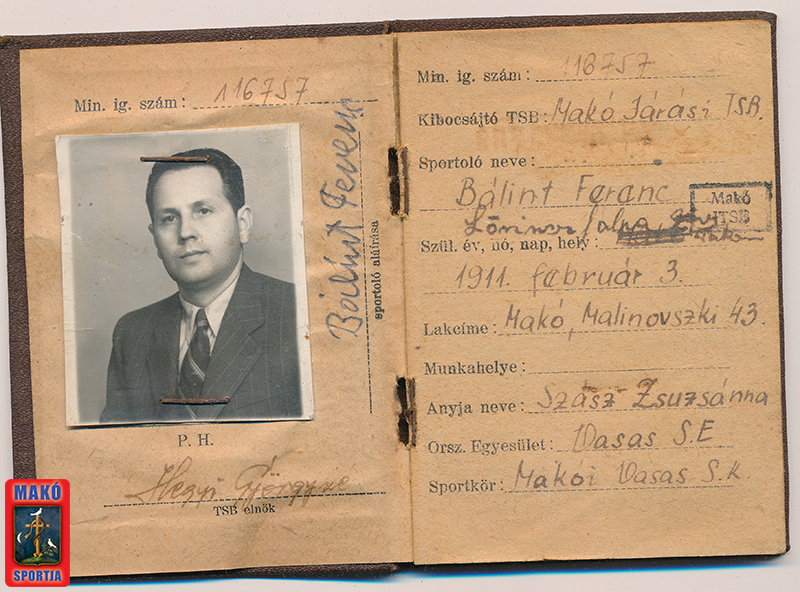 Min. ig. szám: 116757
Bálint Ferenc
sportoló aláírása
P. H.
Hegyi Györgyne
TSB elnök
MAKÓ
SPORTJA
Min. ig. szám: 116757
Kibocsájtó TSB: Makó Járási TSB.
Sportoló neve:
Bálint Ferenc
Makó
TSB
Szül. év, hó, nap, hely:
1911. február 3.
Lakcíme: Makó, Malinovszki 43.
Munkahelye:
Anyja neve: Szász Zsuzsánna
Orsz. Egyesület: Vasas S.E
Sportkör: Makói Vasas S.K